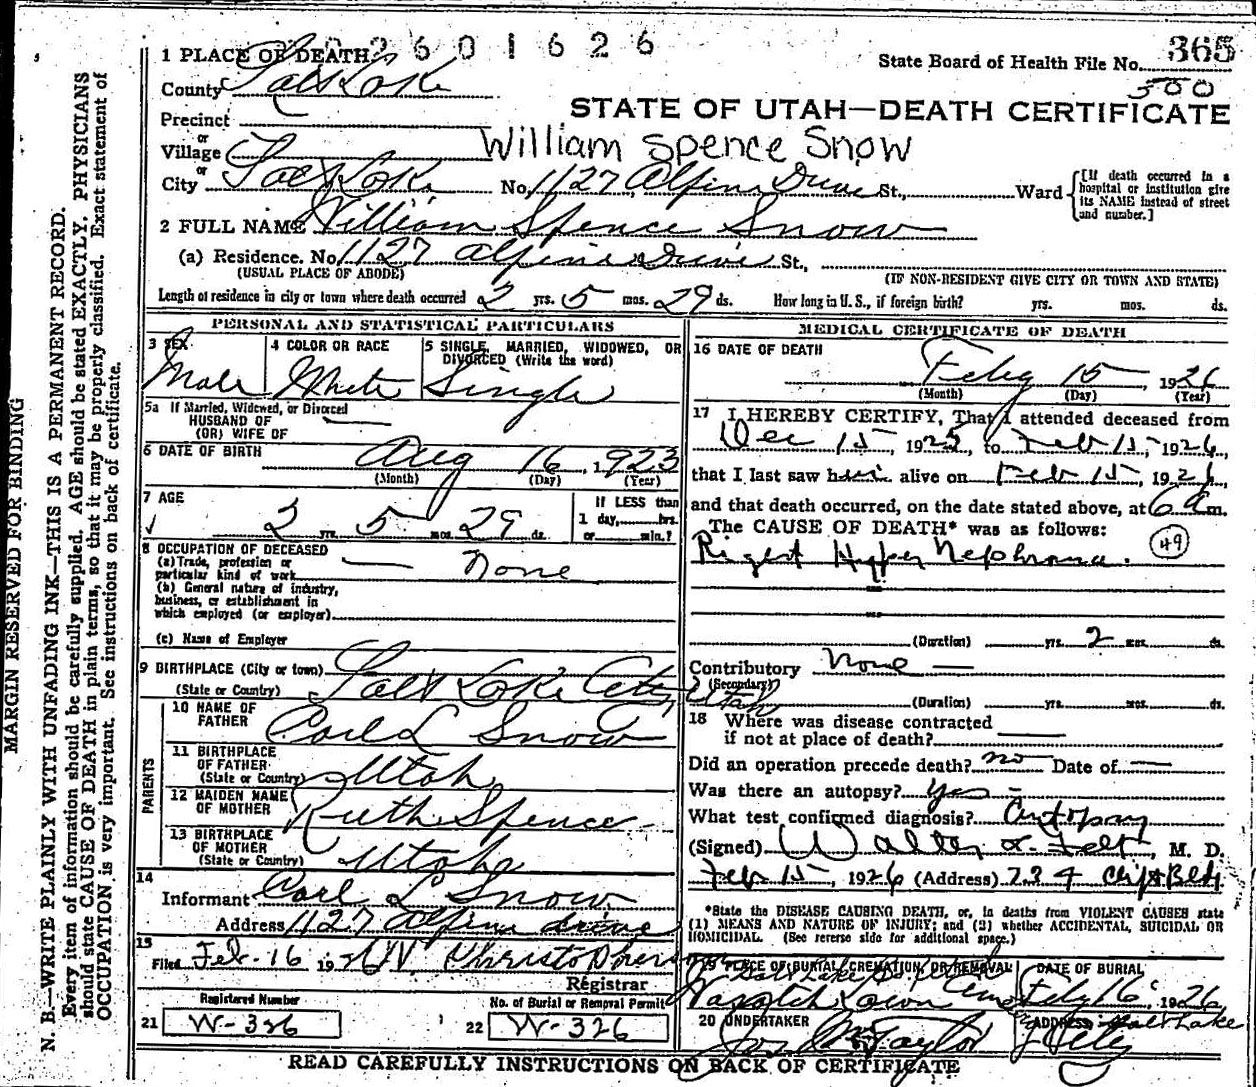 2601626
1 PLACE OF DEATH
State Board of Health File No. 365
County Salt Lake
500
STATE OF UTAH—DEATH CERTIFICATE
Precinct
or
Village
William Spence Snow
or
City Salt Lake No. 1127 Alpine Drive St., Ward
[If death occurred in a
hospital or institution give
its NAME instead of street
and number.]
2 FULL NAME William Spence Snow
(a) Residence. No. 1127 Alpine Drive St.,
(USUAL PLACE OF ABODE) (IF NON-RESIDENT GIVE CITY OR TOWN AND STATE)
Length of residence in city or town where death occurred 2 yrs. 5 mos. 29 ds. How long in U. S., if foreign birth? yrs. mos. ds.
PERSONAL AND STATISTICAL PARTICULARS
3 SEX 4 COLOR OR RACE 5 SINGLE, MARRIED, WIDOWED, OR
DIVORCED (Write the word)
Male White Single
5a If Married, Widowed, or Divorced
HUSBAND OF —
(OR) WIFE OF
6 DATE OF BIRTH Aug 16, 1923
(Month) (Day) (Year)
7 AGE If LESS than
2 yrs. 5 mos. 29 ds. 1 day, hrs.
or min.?
8 OCCUPATION OF DECEASED
(a) Trade, profession or
particular kind of work — None
(b) General nature of industry,
business, or establishment in
which employed (or employer)
(c) Name of Employer
9 BIRTHPLACE (City or town)
(State or Country) Salt Lake City, Utah
PARENTS
10 NAME OF
FATHER Carl L Snow
11 BIRTHPLACE
OF FATHER
(State or Country) Utah
12 MAIDEN NAME
OF MOTHER Ruth Spence
13 BIRTHPLACE
OF MOTHER
(State or Country) Utah
14
Informant Carl L Snow
Address 1127 Alpine drive
15
Filed Feb. 16 1926 W Christopherson
Registrar
Registered Number No. of Burial or Removal Permit
21 W-326 22 W-326
MEDICAL CERTIFICATE OF DEATH
16 DATE OF DEATH
Feby 15, 1926
(Month) (Day) (Year)
17 I HEREBY CERTIFY, That I attended deceased from
Dec 15, 1925, to Feb 15, 1926,
that I last saw him alive on Feb 15, 1926,
and that death occurred, on the date stated above, at 6 a m.
The CAUSE OF DEATH* was as follows:
Right Hyper Nephroma. 49
(Duration) yrs. 2 mos. ds.
Contributory None —
(Secondary)
(Duration) yrs. mos. ds.
18 Where was disease contracted
if not at place of death? —
Did an operation precede death? no Date of —
Was there an autopsy? Yes —
What test confirmed diagnosis? Autopsy
(Signed) Walter L. Felt, M. D.
Feb 15, 1926 (Address) 734 Clift Bld
*State the DISEASE CAUSING DEATH, or, in deaths from VIOLENT CAUSES state
(1) MEANS AND NATURE OF INJURY; and (2) whether ACCIDENTAL, SUICIDAL OR
HOMICIDAL. (See reverse side for additional space.)
19 PLACE OF BURIAL, CREMATION, OR REMOVAL DATE OF BURIAL
Wasatch Lawn Feby 16 1926
20 UNDERTAKER ADDRESS Salt Lake
Jos Wm Taylor City
READ CAREFULLY INSTRUCTIONS ON BACK OF CERTIFICATE
MARGIN RESERVED FOR BINDING
N. B.—WRITE PLAINLY WITH UNFADING INK—THIS IS A PERMANENT RECORD.
Every item of information should be carefully supplied. AGE should be stated EXACTLY. PHYSICIANS
should state CAUSE OF DEATH in plain terms, so that it may be properly classified. Exact statement of
OCCUPATION is very important. See instructions on back of certificate.